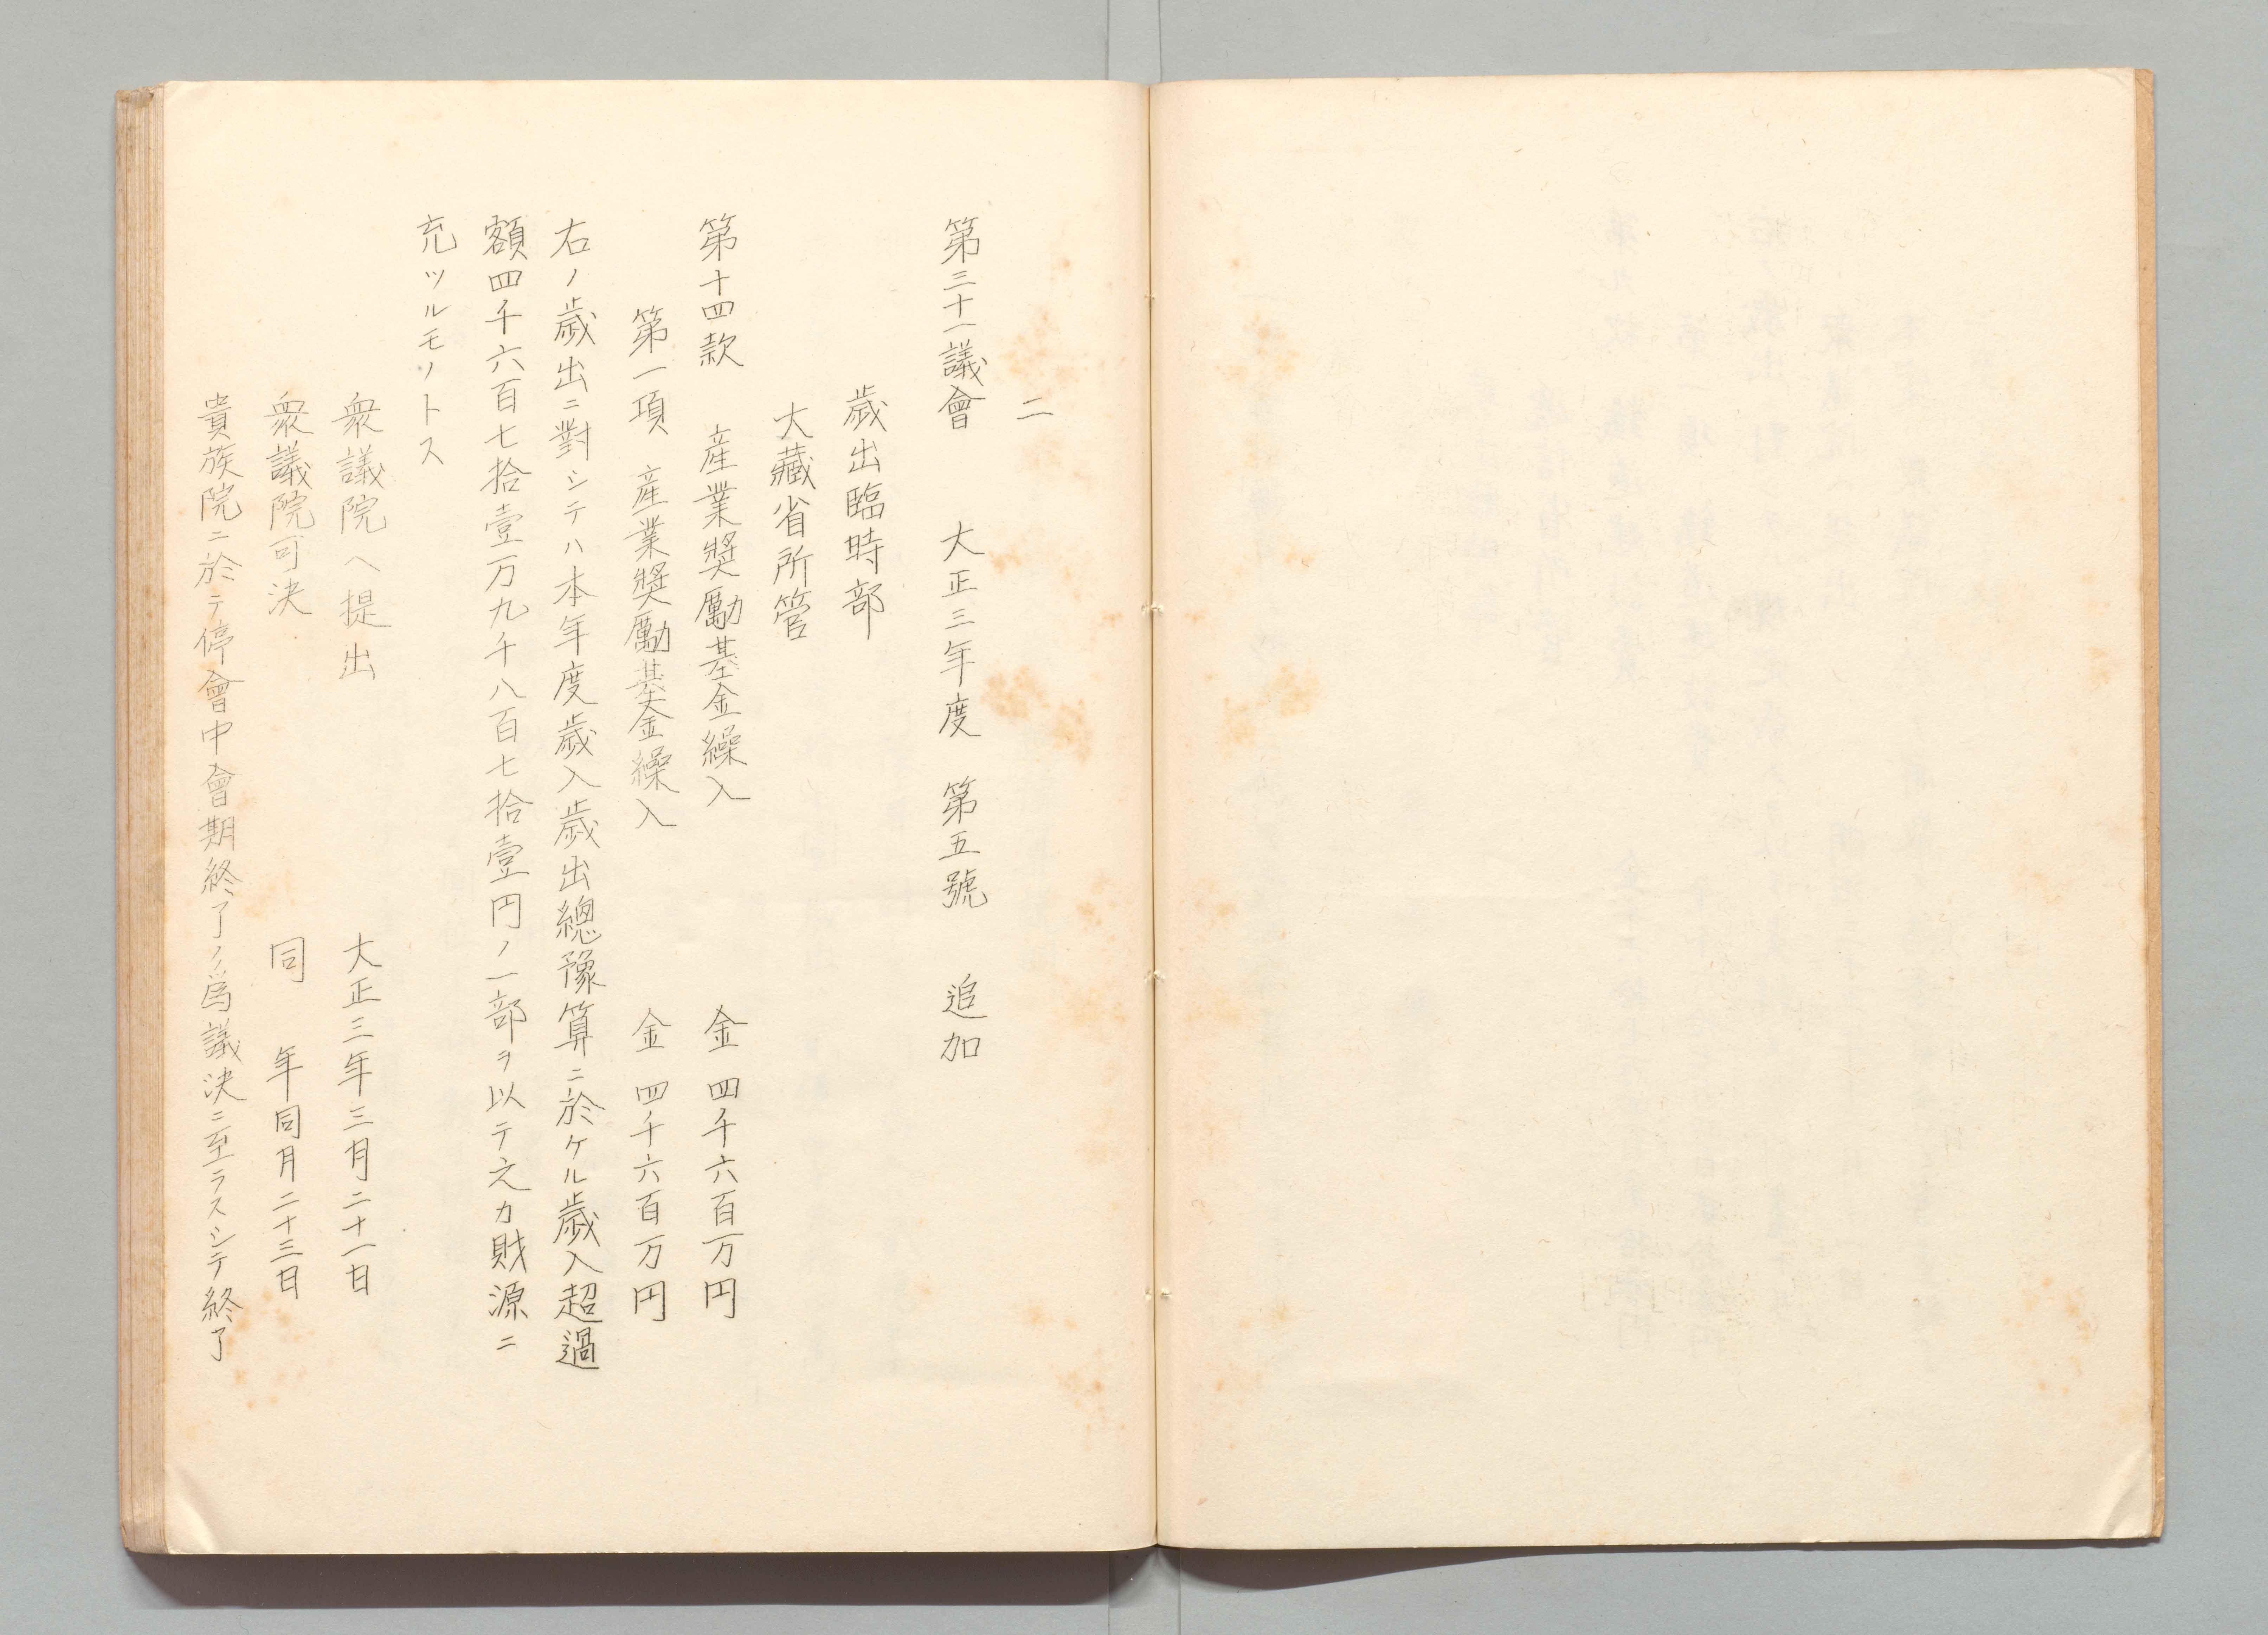 二
第三十一議會　大正三年度　第五號　追加
歲出臨時部
大藏省所管
第十四款　產業獎勵基金繰入　金四千六百万円
第一項　產業獎勵基金繰入　金四千六百万円
右ノ歲出ニ對シテハ本年度歲入歲出總豫算ニ於ケル歲入超過
額四千六百七拾壹万九千八百七拾壹円ノ一部ヲ以テ之カ財源ニ
充ツルモノトス
衆議院ヘ提出　大正三年三月二十一日
衆議院可決　同年同月二十三日
貴族院ニ於テ停會中會期終了ノ爲議決ニ至ラスシテ終了